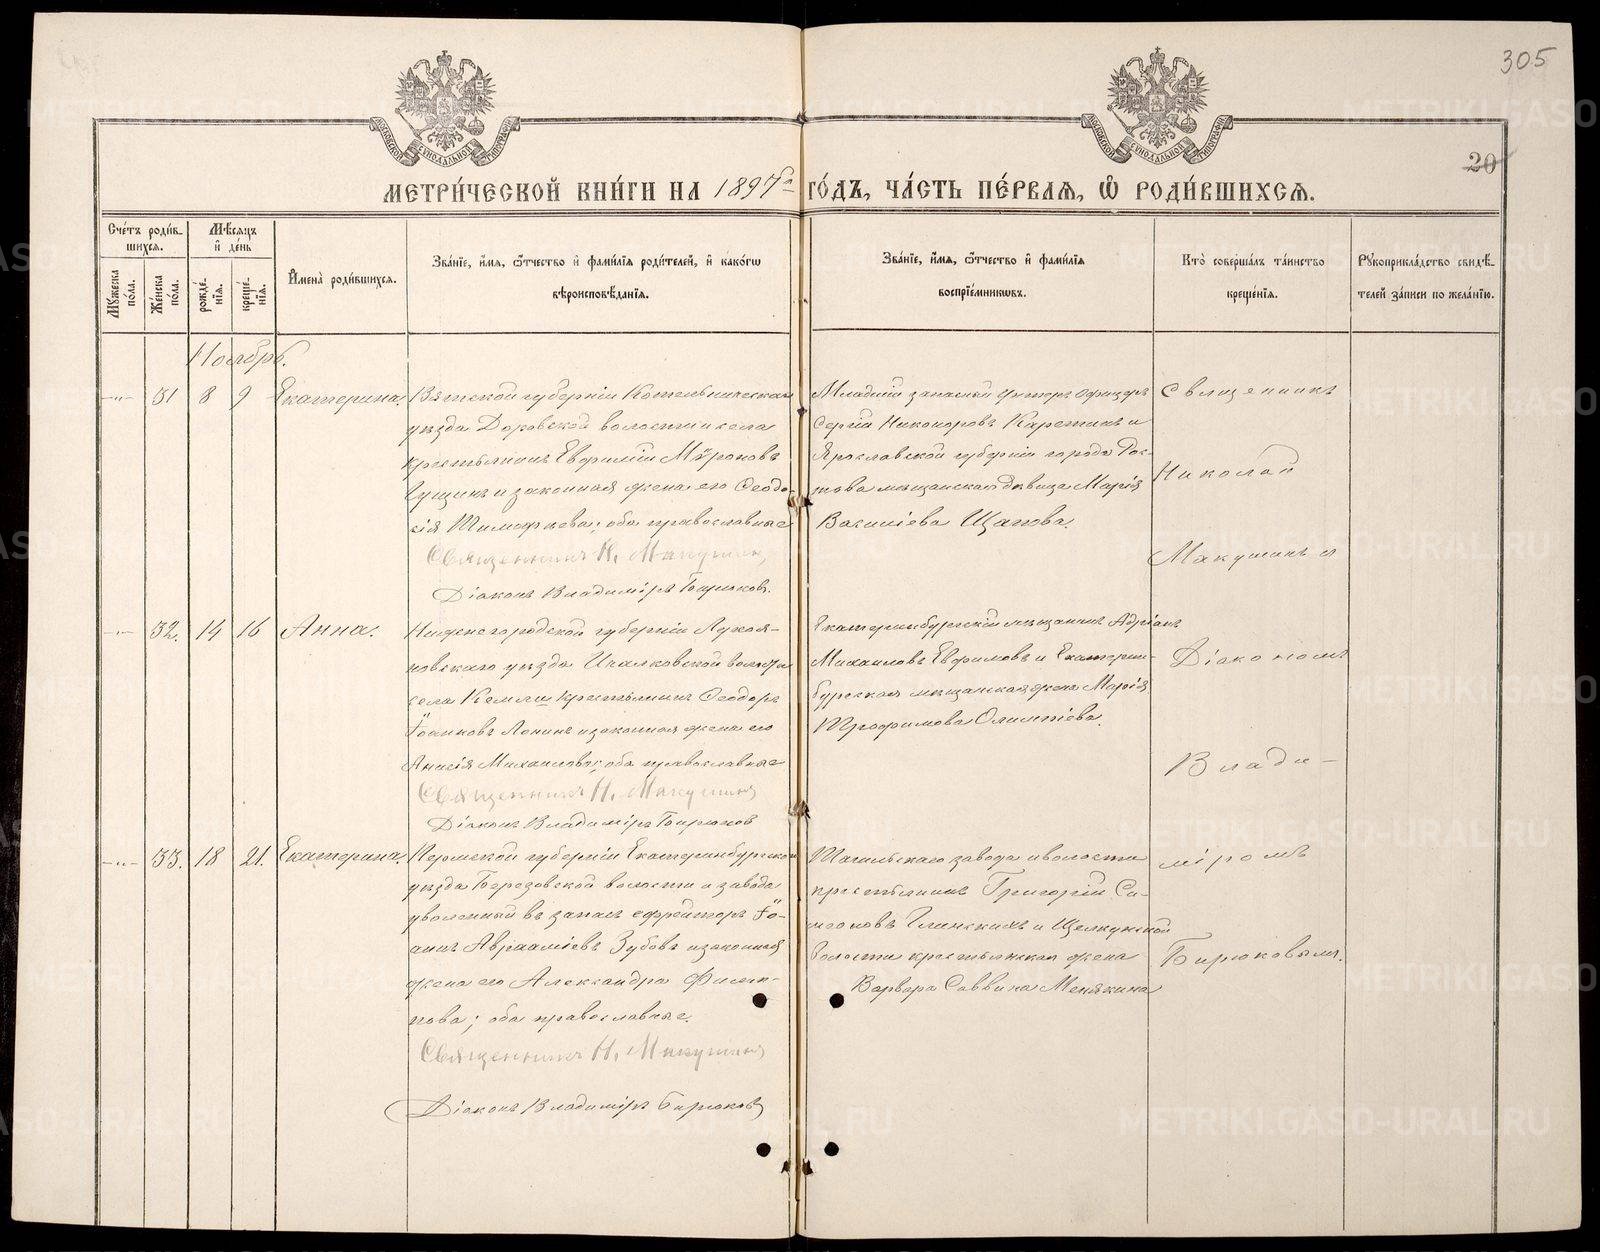 305
20
МОСКОВСКОЙ СѴНОДАЛЬНОЙ ТИПОГРАФІИ
МОСКОВСКОЙ СѴНОДАЛЬНОЙ ТИПОГРАФІИ
МЕТРИ́ЧЕСКОЙ КНИ́ГИ НА 1897й ГО́ДЪ, ЧА́СТЬ ПЕ́РВАЯ, Ѡ РОДИ́ВШИХСЯ.
Сче́тъ роди́в-
шихся.
Му́жеска по́ла.
Же́нска по́ла.
Мѣ́сяцъ
и҆ де́нь
рожде́-
нїя.
креще́-
нїя.
И҆мена̀ роди́вшихся.
Зва́нїе, и҆́мя, ѻ҆́тчество и҆ фами́лїя роди́телей, и҆ како́гѡ
вѣроисповѣ́данїя.
Зва́нїе, и҆́мя, ѻ҆́тчество и҆ фами́лїя
воспрїе́мникѡвъ.
Кто̀ соверша́лъ та́инство
креще́нїя.
Рꙋкоприкла́дство свидѣ́-
телей за́писи по жела́нїю.
Ноябрь.
31 8 9 Екатерина.
Вятской губерніи Котельническаго
уѣзда Доровской волости и села
крестьянинъ Евфимій Мѵроновъ
и законная жена его Ѳеодо-
сія Тимофѣева; оба православные
Священникъ Н. Макушинъ,
Діаконъ Владиміръ Бирюковъ.
Младшій запасный унтеръ офицеръ
Сергій Никоноровъ Каретинъ и
Ярославской губерніи города Рос-
това мѣщанская дѣвица Марія
Василіева Щапова.
Священникъ
Николай
Макушинъ и
32. 14 16 Анна.
Нижнегородской губерніи Лукоя-
новскаго уѣзда Ичалковской волости
села Кемли крестьянинъ Ѳеодоръ
Іоанновъ Лонинъ и законная жена его
Анисія Михаилова; оба православные
Священникъ Н. Макушинъ
Діаконъ Владиміръ Бирюковъ
Екатеринбургскій мѣщанинъ Адріанъ
Михаиловъ Евфимовъ и Екатерин-
бургская мѣщанская жена Марія
Трофимова Олимпіева.
Діакономъ
Влади-
33. 18 21. Екатерина.
Пермской губерніи Екатеринбургскаго
уѣзда Березовской волости и завода
уволенный въ запасъ ефрейторъ Іо-
аннъ Авраамiевъ Зубовъ и законная
жена его Александра Филип-
пова; оба православные.
Священникъ Н. Макушинъ
Діаконъ Владиміръ Бирюковъ
завода и волости
крестьянинъ Григорій Си-
меоновъ Глинскихъ и Щелкунской
волости крестьянская жена
Варвара Саввина Менякина
міромъ
Бирюковымъ.
METRIKI.GASO-URAL.RU